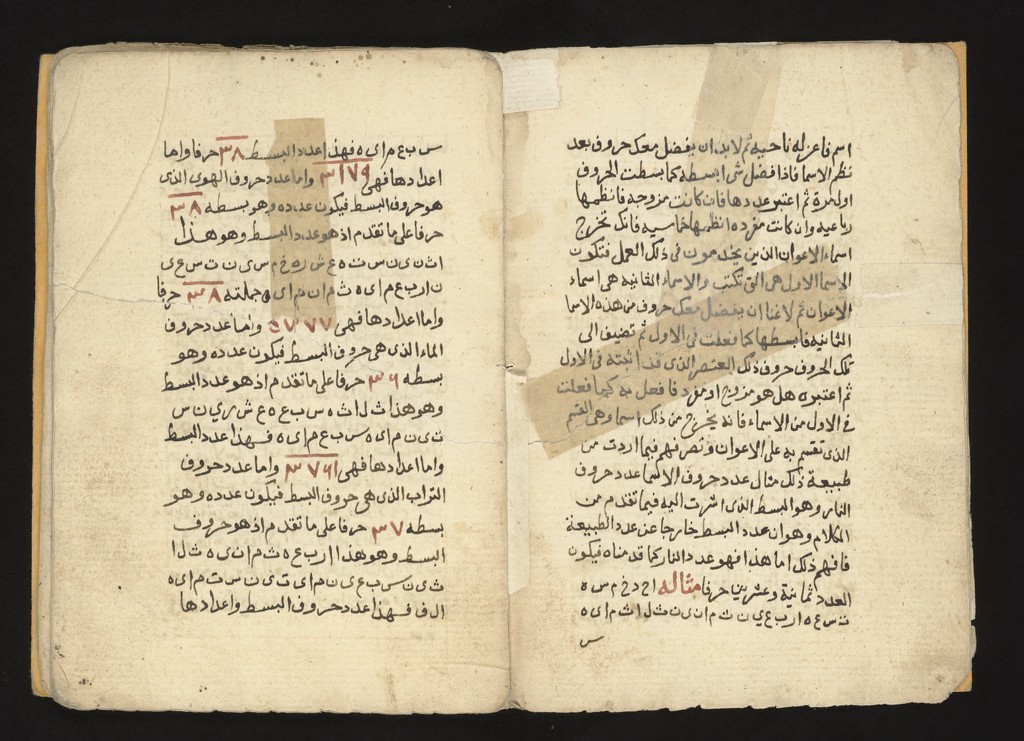 اسم فاعزله ناحية ثم لابد ان يفضل معك حروف بعد
نظم الاسما فاذا فضل شى ابسطه كما بسطت الحروف
اول مرة ثم اعتبر عددها فان كانت مزوجه فانظمها
رباعيه وان كانت مفرده انظمها خماسيه فانك تخرج
اسماء الاعوان الذين يخدمون فى ذلك العمل فتكون
الاسما الاول هى التى تكتب والاسماء الثانيه هى اسماء
الاعوان ثم لا غنا ان يفضل معك حروف من هذه الاسما
الثانيه فابسطها كما فعلت فى الاول ثم تضيف الى
تلك الحروف حروف ذلك العنصر الذى قد اثبته فى الاول
ثم اعتبره هل هو مزوج او مفرد فافعل به كما فعلت
فى الاول من الاسماء فانه يخرج من ذلك اسما وهى القسم
الذى تقسم به على الاعوان وتصرفهم فيما اردت من
طبيعة ذلك مثال عدد حروف الاسما عدد حروف
النار وهو البسط الذى اشرت اليه فيما تقدم من
الكلام وهو ان عدد البسط خارجا عن عدد الطبيعة
فافهم ذلك اما هذا فهو عدد النار كما قدمناه فيكون
العدد ثمانية وعشرين حرفا مثاله ا ح د خ م س ه
ت س ع ه ا ر ب ع ي ن ث م ا ن ى ن ث ل ا ث م ا ى ه
س
س ب ع م ا ى ه فهذا عدد البسط ٣٨ حرفا واما
اعدادها فهى ٣١٧٩ واما عدد حروف الهوى الذى
هو حروف البسط فيكون عدده وهو بسطه ٣٨
حرفا على ما تقدم اذ هو عدد البسط وهو هذا
ا ث ن ى ن س ت ه ع ش ر ه خ م س ى ن ت س ع ى
ن ا ر ب ع م ا ى ه ث م ا ن م ا ى ه جملته ٣٨ حرفا
واما اعدادها فهى ٥٧٧٧ واما عدد حروف
الماء الذى هى حروف البسط فيكون عدده وهو
بسطه ٣٦ حرفا على ما تقدم اذ هو عدد البسط
وهو هذا ث ل ا ث ه س ب ع ه ع ش ر ي ن س
ت ى ن م ا ى ه س ب ع م ا ى ه فهذا عدد البسط
واما اعدادها فهى ٣٧٦١ واما عدد حروف
التراب الذى هى حروف البسط فيكون عدده وهو
بسطه ٣٧ حرفا على ما تقدم اذ هو حروف
البسط وهو هذا ا ر ب ع ه ث م ا ن ى ه ث ل ا
ث ى ن س ب ع ى ن م ا ى ت ى ن س ت م ا ى ه
ا ل ف فهذا عدد حروف البسط واعدادها